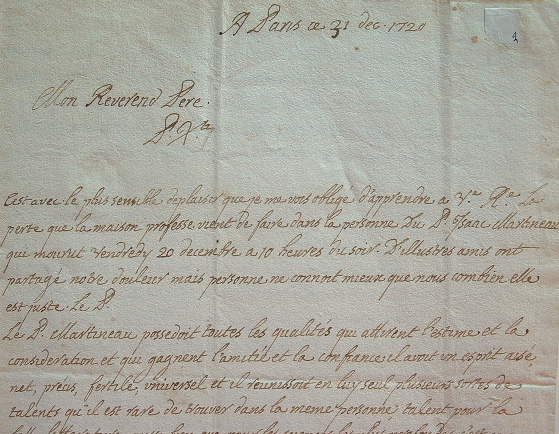 A Paris ce 31 dec. 1720
2
Mon Reverend Pere.
P. X.ti
C'est avec le plus sensible deplaisir que je me vois obligé d'apprendre a V.e R.ce la
perte que la maison professe vient de faire dans la personne Du P. Isaac Martineau
qui mourut Vendredy 20 decembre a 10 heures du soir. D'illustres amis ont
partagé notre douleur mais personne ne connoit mieux que nous combien elle
est juste. Le P.
Le P. Martineau possedoit toutes les qualités qui attirent l'estime et la
consideration et qui gagnent l'amitié et la confiance il avoit un esprit aisé,
net, précis, fertile, universel et il reunissoit en luy seul plusieurs sortes de
talents qu'il est rare de trouver dans la meme personne talent pour la